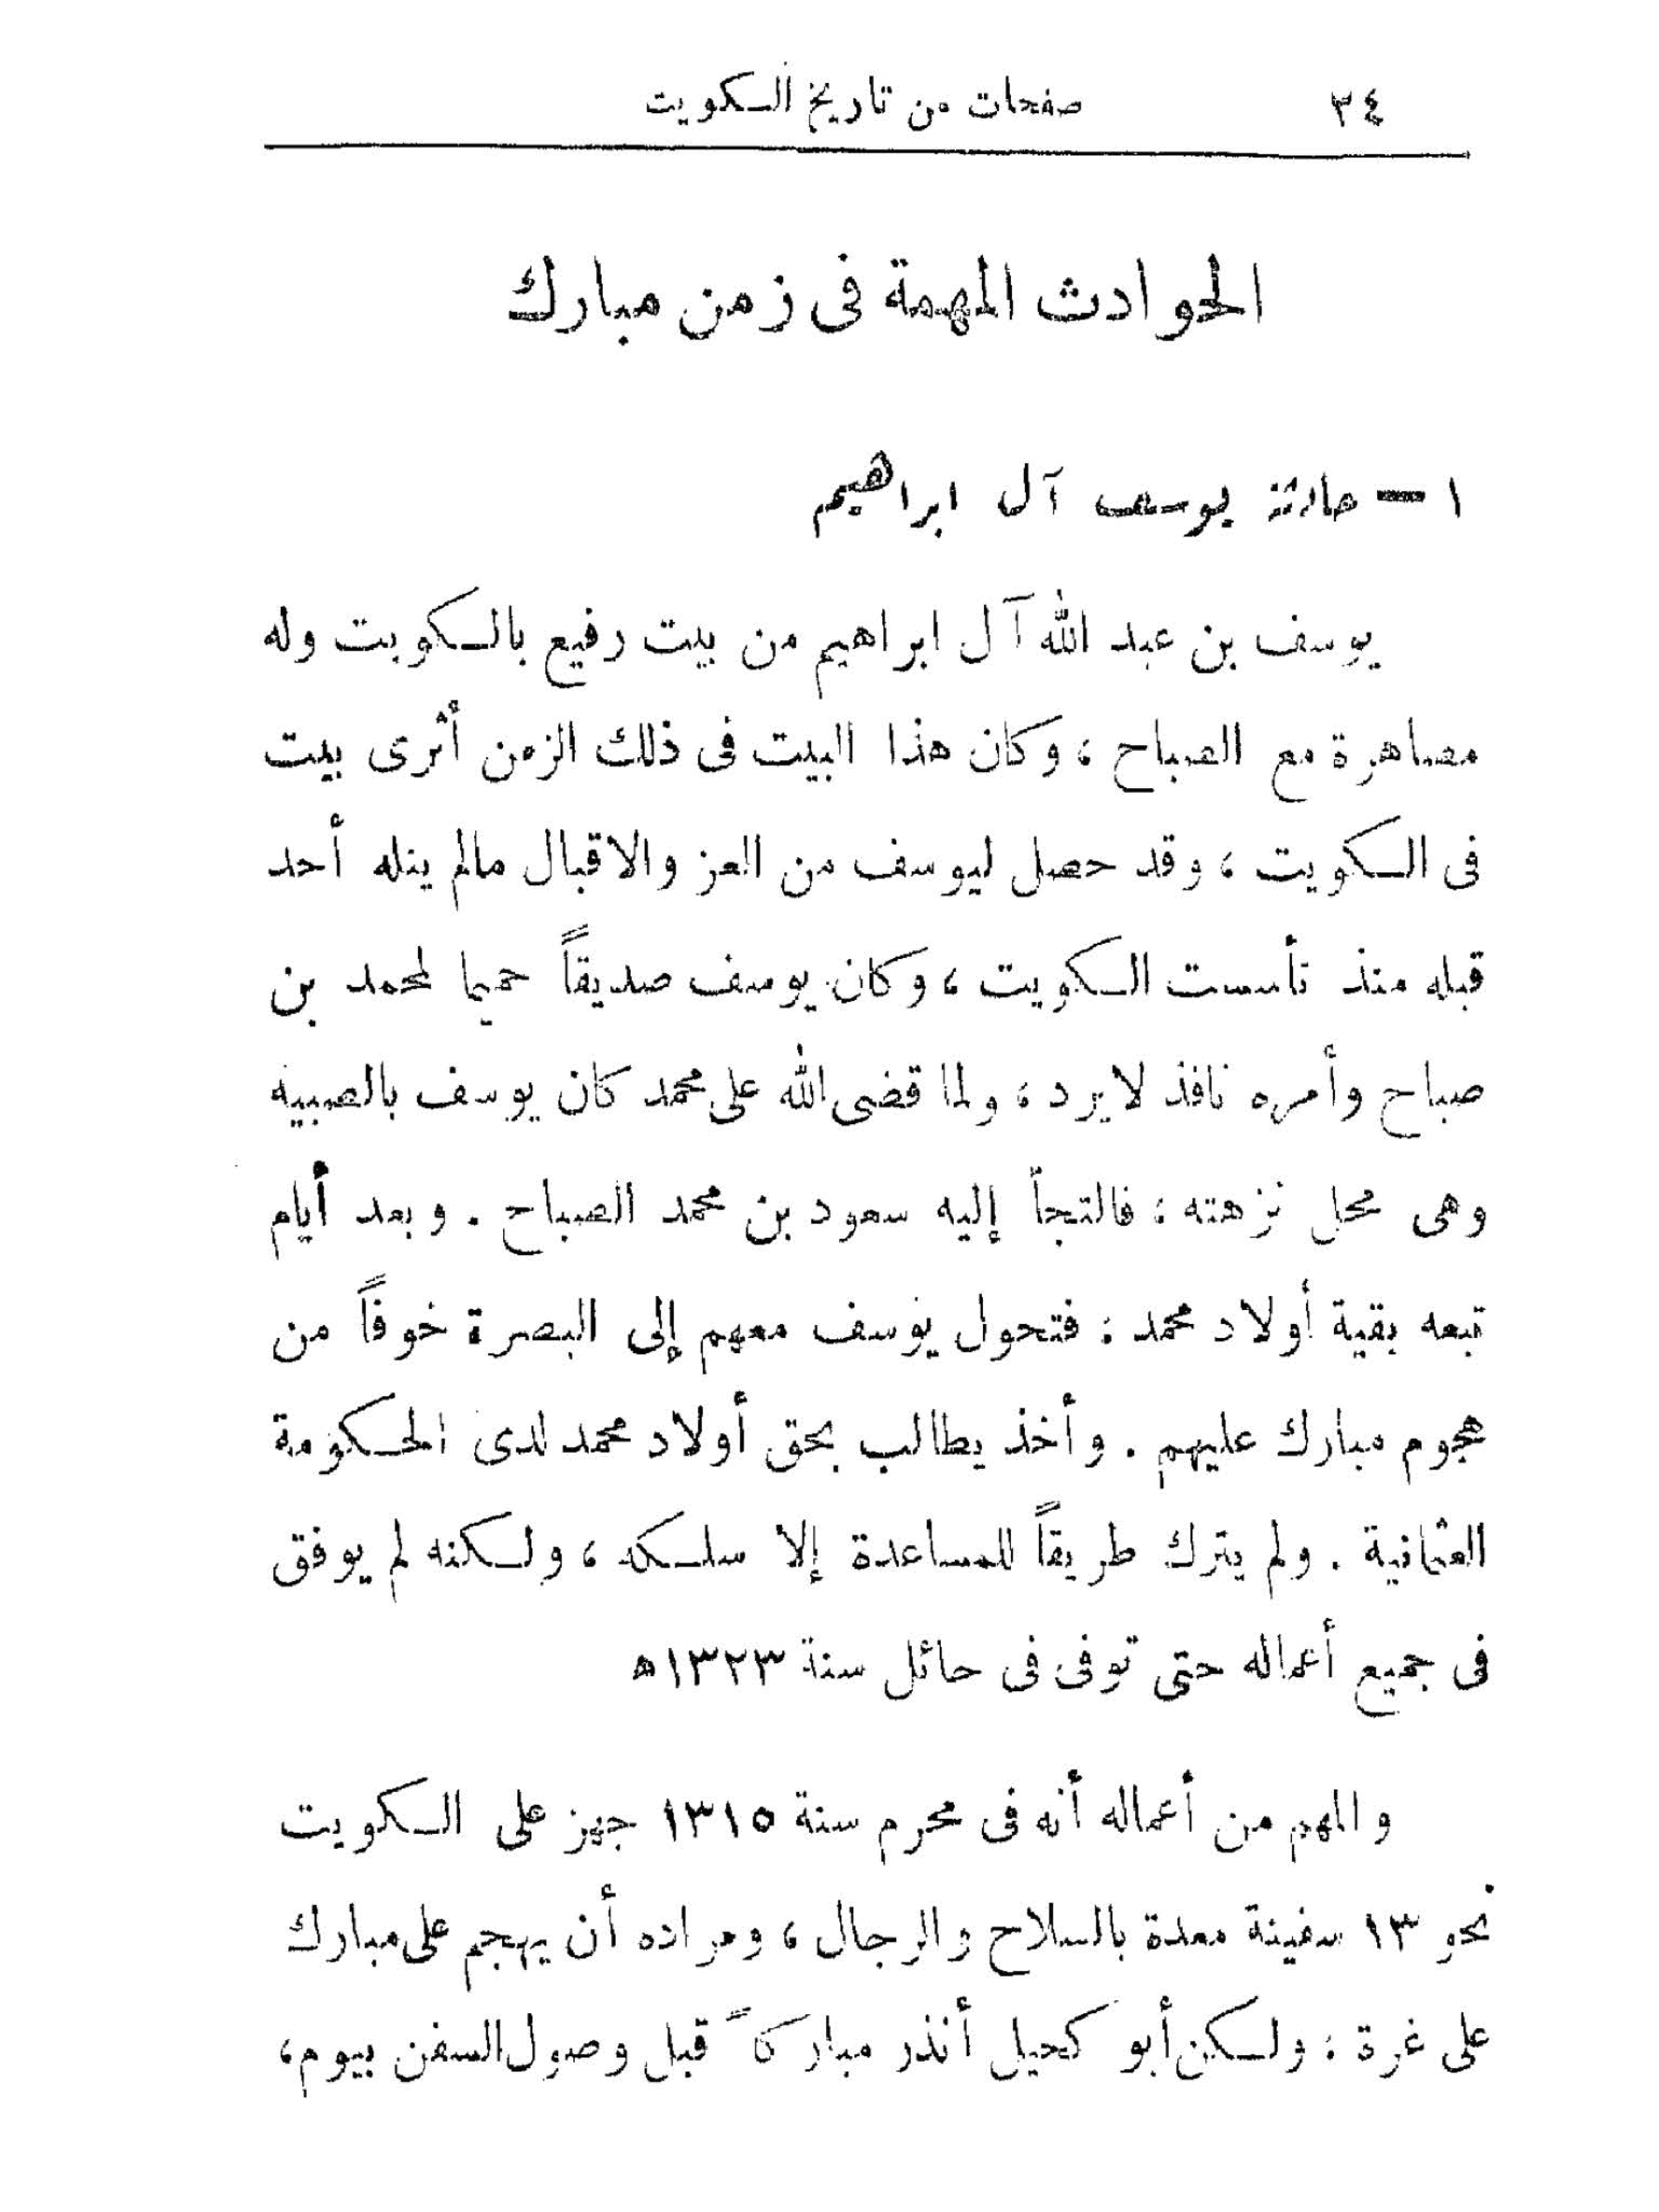 ٣٤ صفحات من تاريخ الكويت
الحوادث المهمة فى زمن مبارك
١ — حادثة يوسف آل ابراهيم
يوسف بن عبد الله آل ابراهيم من بيت رفيع بالكويت وله
مصاهرة مع الصباح ، وكان هذا البيت فى ذلك الزمن أثرى بيت
فى الكويت ، وقد حصل ليوسف من العز والاقبال مالم ينله أحد
قبله منذ تأسست الكويت ، وكان يوسف صديقاً حميما لمحمد بن
صباح وأمره نافذ لايرد ، ولما قضى الله على محمد كان يوسف بالصبية
وهى محل نزهته ؛ فالتجأ إليه سعود بن محمد الصباح . وبعد أيام
تبعه بقية أولاد محمد ؛ فتحول يوسف معهم إلى البصرة خوفاً من
هجوم مبارك عليهم . وأخذ يطالب بحق أولاد محمد لدى الحكومة
العثمانية . ولم يترك طريقاً للمساعدة إلا سلكه ، ولكنه لم يوفق
فى جميع أعماله حتى توفى فى حائل سنة ١٣٢٣ه
والمهم من أعماله أنه فى محرم سنة ١٣١٥ جهز على الكويت
نحو ١٣ سفينة معدة بالسلاح والرجال ، ومراده أن يهجم على مبارك
على غرة ؛ ولكن أبو كحيل أنذر مباركاً قبل وصول السفن بيوم ،